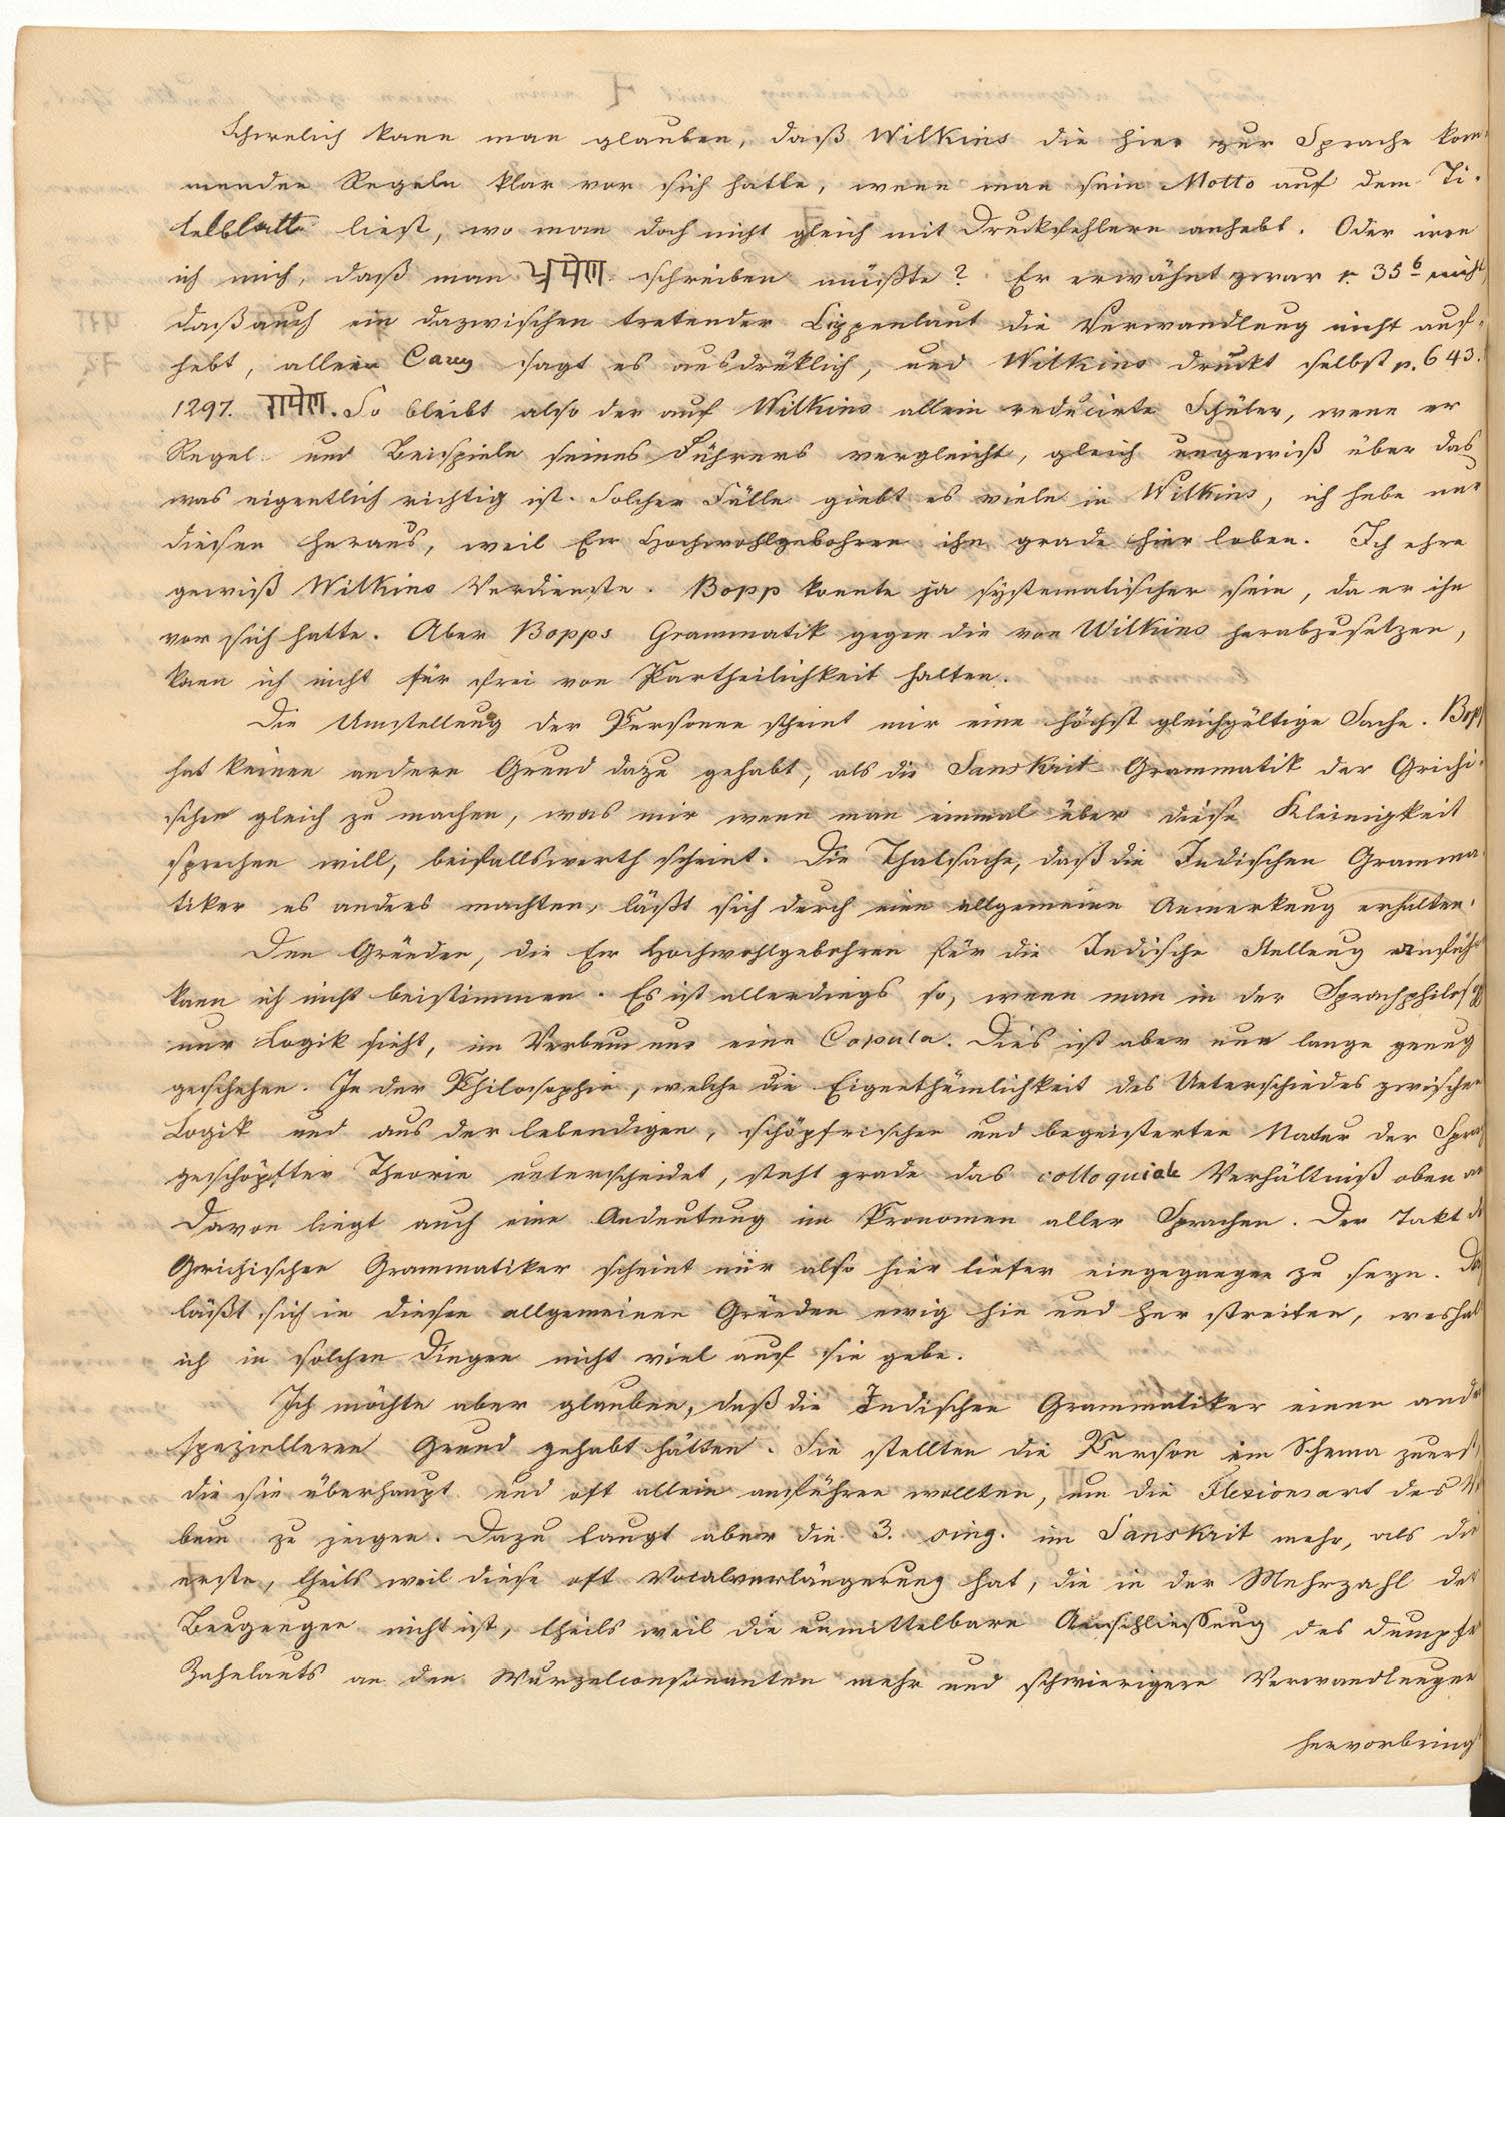 Schwerlich kann man glauben, daß Wilkins die hier zur Sprache kom-
menden Regeln klar vor sich hatte, wenn man sein Motto auf dem Ti-
telblatt liest, wo man doch nicht gleich mit Druckfehlern anhebt. Oder irre
ich mich, daß man schreiben müßte? Er erwähnt zwar r. 35 nicht,
daß auch ein dazwischen tretender Lippenlaut die Verwandlung nicht auf-
hebt, allein Carey sagt es ausdrüklich, und Wilkins druckt selbst p. 643.
1297. रामेण. So bleibt also der auf Wilkins allein reducirte Schüler, wenn er
Regel und Beispiele seines Führers vergleicht, gleich ungewiß über das
was eigentlich richtig ist. Solcher Fälle giebt es viele in Wilkins, ich hebe nur
diesen heraus, weil Ew Hochwohlgebohren ihn grade hier loben. Ich ehre
gewiß Wilkins Verdienste. Bopp konnte ja systematischer sein, da er ihn
vor sich hatte. Aber Bopps Grammatik gegen die von Wilkins herabzusetzen,
kann ich nicht für frei von Partheilichkeit halten.
Die Umstellung der Personen scheint mir eine höchst gleichgültige Sache. Bopp
hat keinen andern Grund dazu gehabt, als die Sanskrit Grammatik der Grichi-
schen gleich zu machen, was mir wenn man einmal über diese Kleinigkeit
sprechen will, beifallswerth scheint. Die Thatsache, daß die Indischen Gramma-
tiker es anders machten, läßt sich durch eine allgemeine Anmerkung erhalten.
Den Gründen, die Ew Hochwohlgebohren für die Indische Stellung anführ
kann ich nicht beistimmen. Es ist allerdings so, wenn man in der Sprachphilos
nur Logik sieht, im Verbum nur eine Copula. Dies ist aber nun lange genug
geschehen. In der Philosophie, welche die Eigenthümlichkeit des Unterschiedes zwischen
Logik und aus der lebendigen, schöpfrischen und begeisterten Natur der Sprach
geschöpfter Theorie unterscheidet, steht grade das colloquiale Verhältniß oben an
Davon liegt auch eine Andeutung im Pronomen aller Sprachen. Der Takt de
Grichischen Grammatiker scheint mir also hier tiefer eingegangen zu seyn. Da
läßt sich in diesen allgemeinen Gründen ewig hin und her streiten, weshalb
ich in solchen Dingen nicht viel auf sie gebe.
Ich möchte aber glauben, daß die Indischen Grammatiker einen and
spezielleren Grund gehabt hätten. Sie stellten die Person im Schema zuerst,
die sie überhaupt und oft allein anführen wollten, um die Flexionsart des Ver
bum zu zeigen. Dazu taugt aber die 3. sing. im Sanskrit mehr, als die
erste, theils weil diese oft Vocalverlängerung hat, die in der Mehrzahl der
Beugungen nicht ist, theils weil die unmittelbare Anschliessung des dumpfen
Zahnlauts an den Wurzelconsonanten mehr und schwierigere Verwandlungen
hervorbring